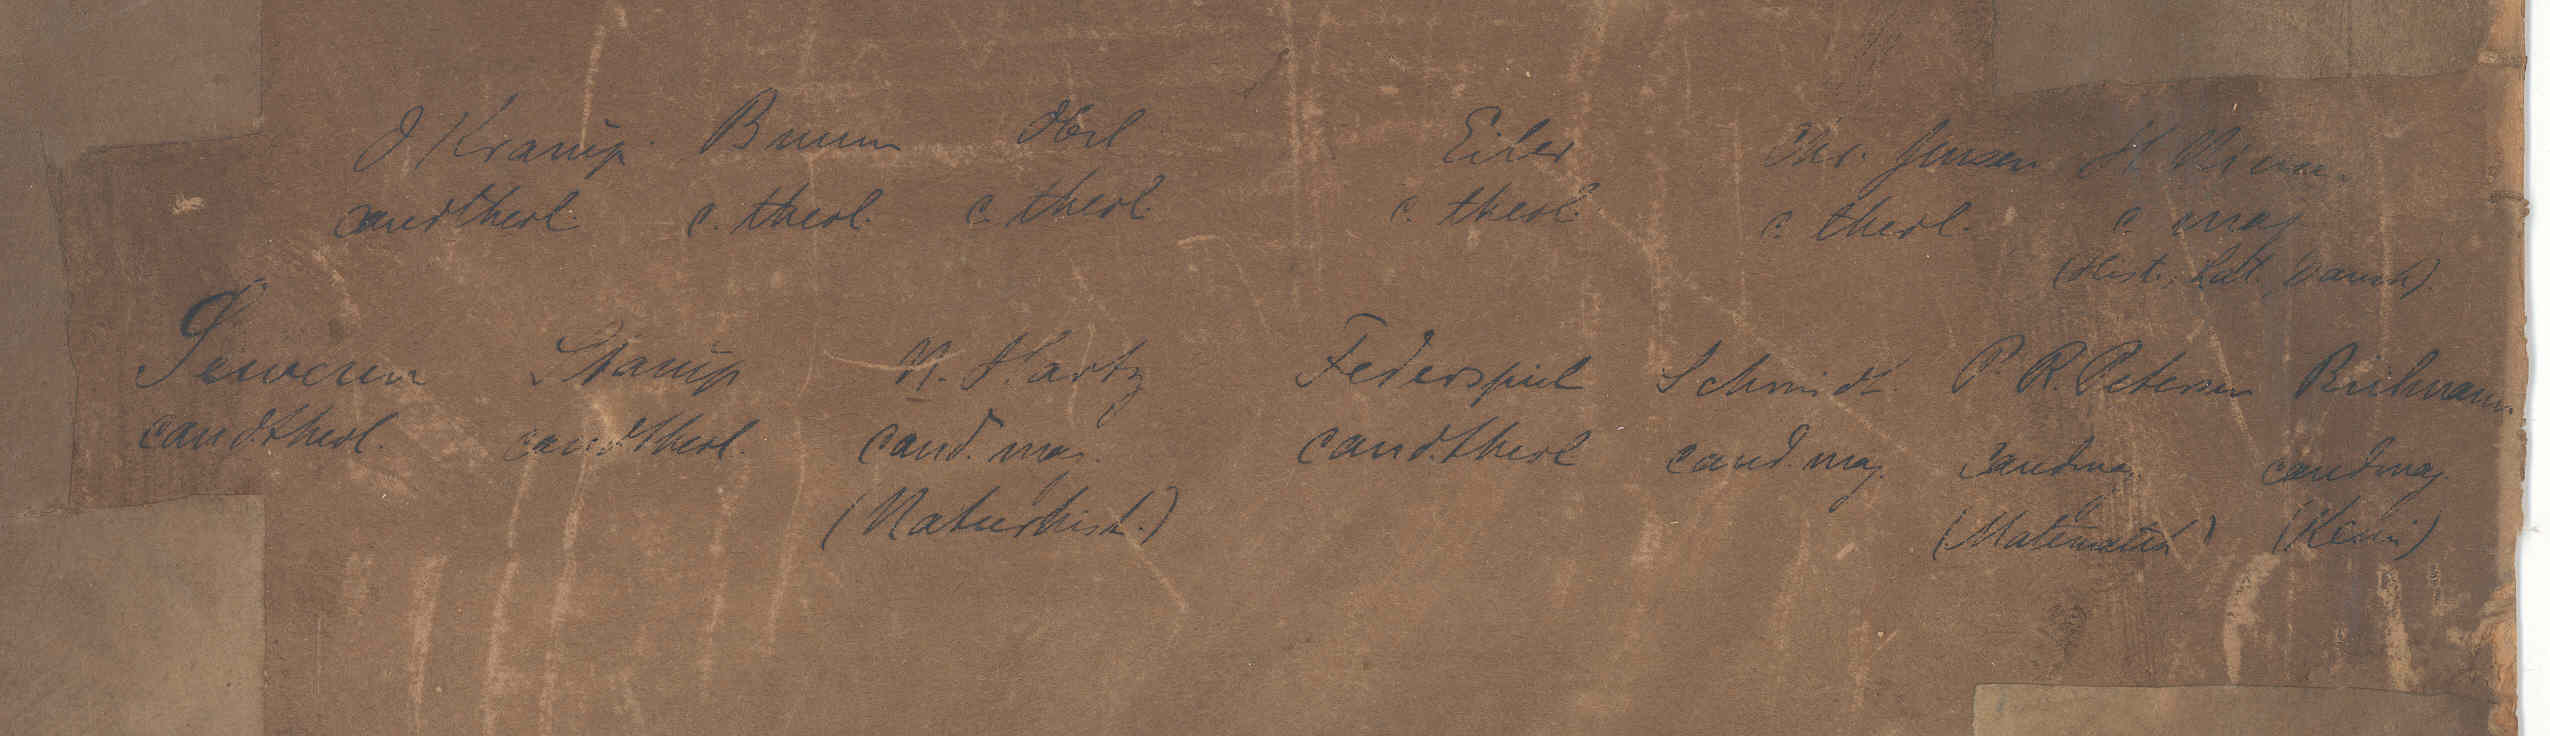 J Krarup. Bruun Eiler Chr. Jensen H.
cand theol. c. theol. c. theol. c. theol. c. theol. c. mag
(Hist., Lat., Dansk).
Starup N. Hartz Federspiel Schmidt. P. R. Petersen
cand. theol. cand theol. cand. mag. cand. theol cand. mag. cand mag. cand mag.
(Naturhist.) (Matematik) (Kemi)